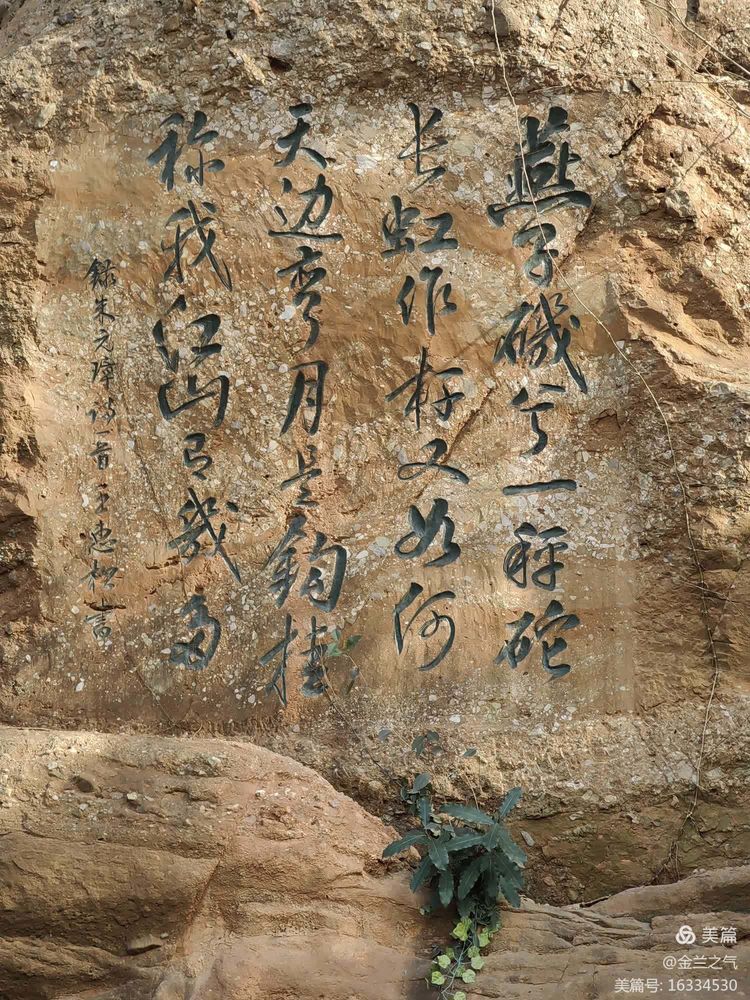 燕子矶兮一秤砣
长虹作杆又如何
天边弯月是钩挂
称我江山有几多
録朱元璋诗一首 王惠松書
美篇
@金兰之气
美篇号: 16334530